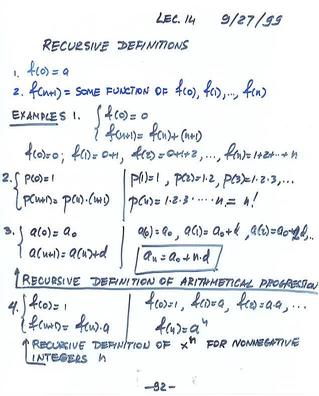 LEC. 14 9/27/99
RECURSIVE DEFINITIONS
1. f(0) = a
2. f(n+1) = SOME FUNCTION OF f(0), f(1),..., f(n)
EXAMPLES 1. { f(0) = 0
f(n+1) = f(n) + (n+1)
f(0)=0; f(1)=0+1, f(2)=0+1+2, ..., f(n)=1+2+··+n
2. { p(0)=1 | p(1)=1, p(2)=1·2, p(3)=1·2·3,...
p(n+1)=p(n)·(n+1) | p(n)=1·2·3·····n = n!
3. { a(0)=a₀ | a(0)=a₀, a(1)=a₀+d, a(2)=a₀+2d,..
a(n+1)=a(n)+d | aₙ=a₀+n·d
↑ RECURSIVE DEFINITION OF ARITHMETICAL PROGRESSION
4. { f(0)=1 | f(0)=1, f(1)=a, f(2)=a·a, ...
f(n+1)=f(n)·a | f(n)=aⁿ
↑ RECURSIVE DEFINITION OF xⁿ FOR NONNEGATIVE
INTEGERS n
–32–